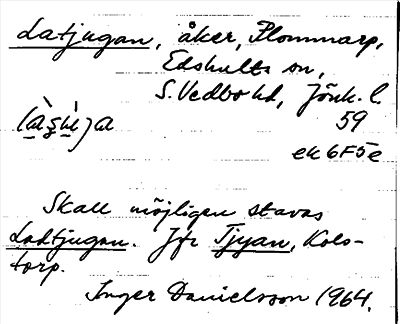 Latjugan, åker, Plommarp,
Edshults sn,
S. Vedbo hd, Jönk. l.
59
ek 6F5e
Skall möjligen stavas
Ladtjugan. Jfr Tjyan, Kols-
torp.
Inger Danielsson 1964.